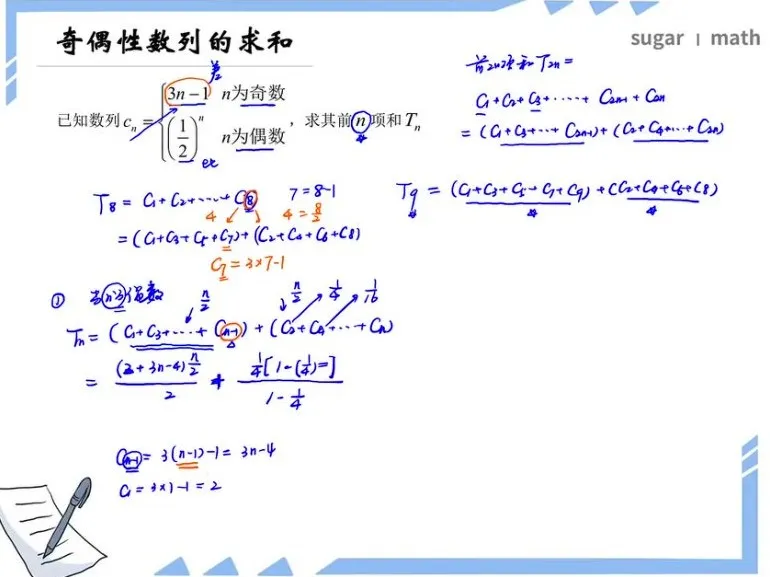 奇偶性数列的求和
sugar | math
已知数列 cₙ = { 3n−1 n为奇数
(1/2)ⁿ n为偶数 ,求其前n项和Tₙ
前2n项和T₂ₙ=
C₁+C₂+C₃+·····+ C₂ₙ₋₁+C₂ₙ
=(C₁+C₃+···+C₂ₙ₋₁)+(C₂+C₄+···+C₂ₙ)
T₈ = C₁+C₂+·····+C₈ 7=8-1
4 4=8/2
=(C₁+C₃+C₅+C₇)+(C₂+C₄+C₆+C₈)
C₇=3×7-1
T₉ = (C₁+C₃+C₅+C₇+C₉)+(C₂+C₄+C₆+C₈)
① 当n为偶数 n/2 n/2 1/4 1/16
Tₙ=(C₁+C₃+···+Cₙ₋₁)+(C₂+C₄+···+Cₙ)
= (2+3n-4)n/2 / 2 + 1/4[1-(1/4) ] / 1-1/4
Cₙ₋₁=3(n-1)-1=3n-4
C₁=3×1-1=2